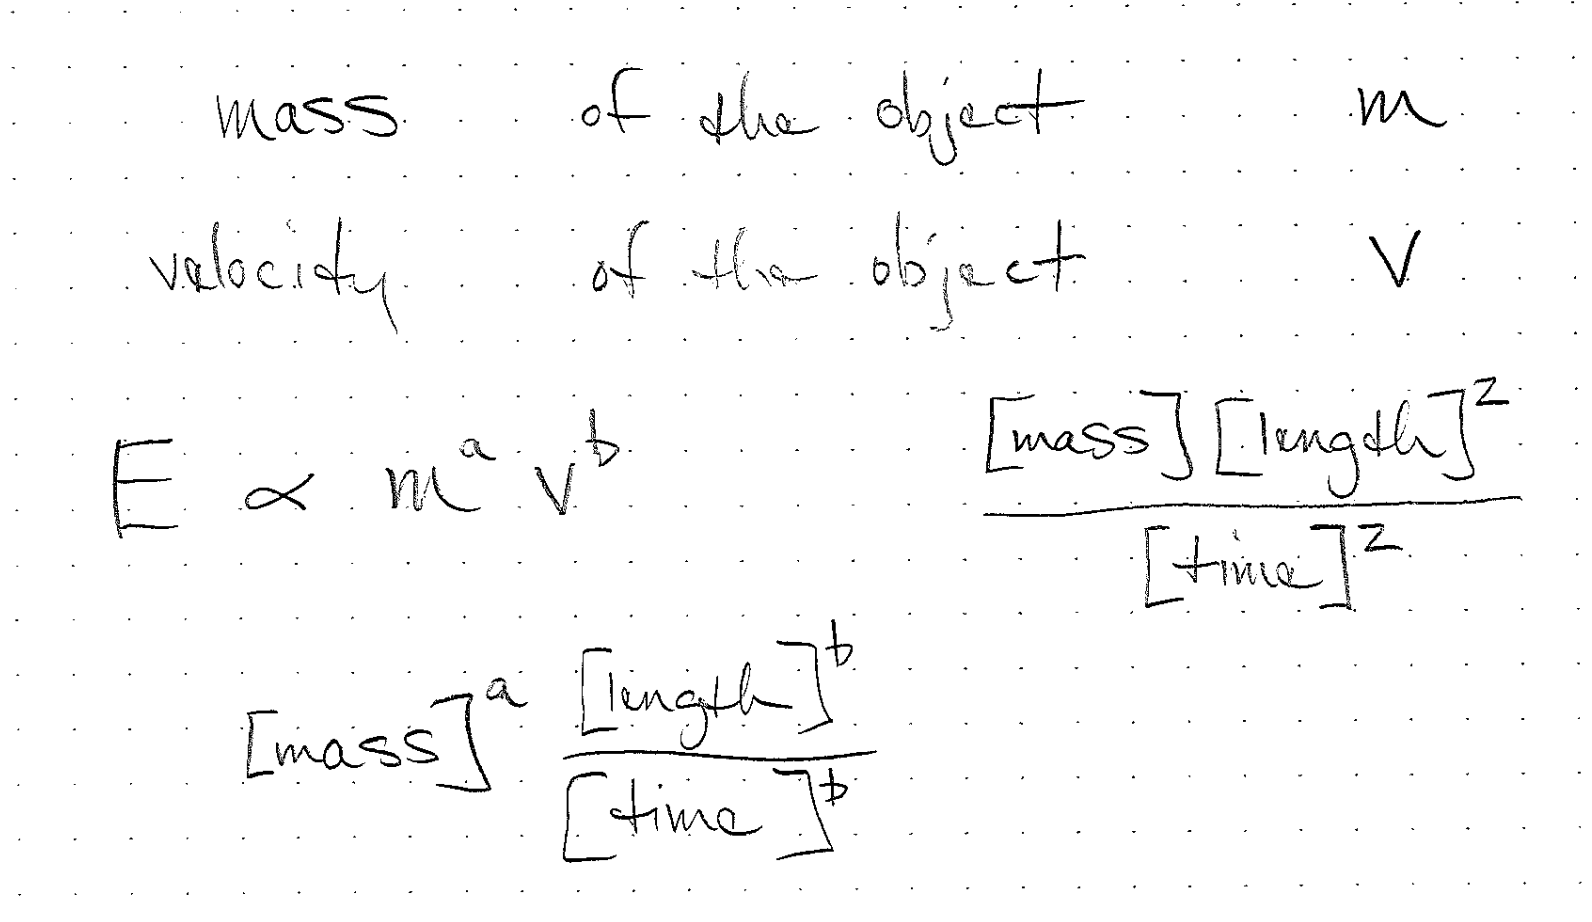 mass of the object m
velocity of the object v
E ∝ m^a v^b [mass][length]^2 / [time]^2
[mass]^a [length]^b / [time]^b